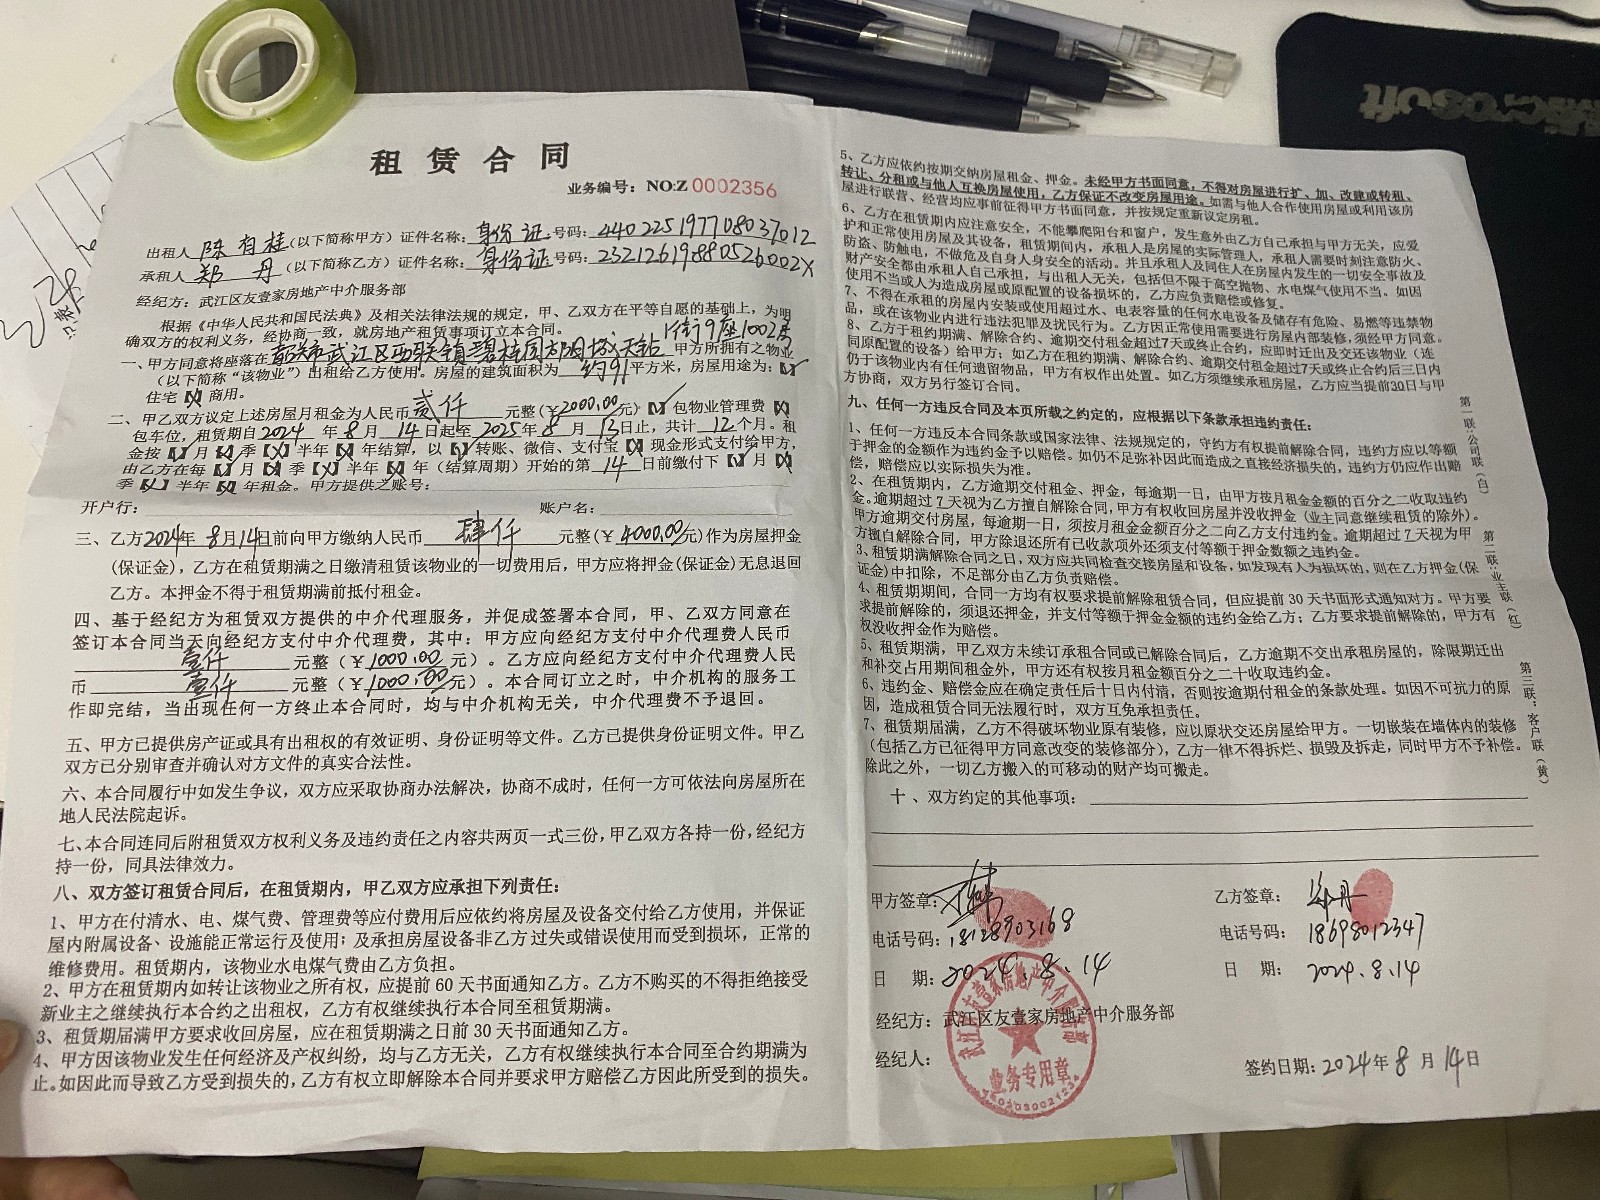 租赁合同
业务编号：NO:Z 0002356
出租人 陈有桂 (以下简称甲方) 证件名称：身份证 号码：440225197708037012
承租人 郑丹 (以下简称乙方) 证件名称：身份证 号码：23212619880526002X
经纪方：武江区友壹家房地产中介服务部
根据《中华人民共和国民法典》及相关法律法规的规定，甲、乙双方在平等自愿的基础上，为明
确双方的权利义务，经协商一致，就房地产租赁事项订立本合同。
1街9座1002房
一、甲方同意将座落在韶关市武江区西联镇碧桂园 城天钻 甲方所拥有之物业
（以下简称“该物业”）出租给乙方使用。房屋的建筑面积为 约91平方米，房屋用途为：【√】
住宅【×】商用。
二、甲乙双方议定上述房屋月租金为人民币 贰仟 元整（￥2000.00元）【√】包物业管理费【×】
包车位，租赁期自2024年8月14日起至2025年8月13日止，共计12个月。租
金按【√】月【×】季【×】半年【×】年结算，以【√】转账、微信、支付宝【×】现金形式支付给甲方，
由乙方在每【√】月【×】季【×】半年【×】年（结算周期）开始的第14日前缴付下【√】月【×】
季【×】半年【×】年租金。甲方提供之账号：
开户行： 账户名：
三、乙方2024年8月14日前向甲方缴纳人民币 肆仟 元整（￥4000.00元）作为房屋押金
(保证金)，乙方在租赁期满之日缴清租赁该物业的一切费用后，甲方应将押金(保证金)无息退回
乙方。本押金不得于租赁期满前抵付租金。
四、基于经纪方为租赁双方提供的中介代理服务，并促成签署本合同，甲、乙双方同意在
签订本合同当天向经纪方支付中介代理费，其中：甲方应向经纪方支付中介代理费人民币
壹仟 元整（￥1000.00元）。乙方应向经纪方支付中介代理费人民
币 壹仟 元整（￥1000.00元）。本合同订立之时，中介机构的服务工
作即完结，当出现任何一方终止本合同时，均与中介机构无关，中介代理费不予退回。
五、甲方已提供房产证或具有出租权的有效证明、身份证明等文件。乙方已提供身份证明文件。甲乙
双方已分别审查并确认对方文件的真实合法性。
六、本合同履行中如发生争议，双方应采取协商办法解决，协商不成时，任何一方可依法向房屋所在
地人民法院起诉。
七、本合同连同后附租赁双方权利义务及违约责任之内容共两页一式三份，甲乙双方各持一份，经纪方
持一份，同具法律效力。
八、双方签订租赁合同后，在租赁期内，甲乙双方应承担下列责任：
1、甲方在付清水、电、煤气费、管理费等应付费用后应依约将房屋及设备交付给乙方使用，并保证
屋内附属设备、设施能正常运行及使用；及承担房屋设备非乙方过失或错误使用而受到损坏，正常的
维修费用。租赁期内，该物业水电煤气费由乙方负担。
2、甲方在租赁期内如转让该物业之所有权，应提前60天书面通知乙方。乙方不购买的不得拒绝接受
新业主之继续执行本合约之出租权，乙方有权继续执行本合同至租赁期满。
3、租赁期届满甲方要求收回房屋，应在租赁期满之日前30天书面通知乙方。
4、甲方因该物业发生任何经济及产权纠纷，均与乙方无关，乙方有权继续执行本合同至合约期满为
止。如因此而导致乙方受到损失的，乙方有权立即解除本合同并要求甲方赔偿乙方因此所受到的损失。
5、乙方应依约按期交纳房屋租金、押金。未经甲方书面同意，不得对房屋进行扩、加、改建或转租、
转让、分租或与他人互换房屋使用，乙方保证不改变房屋用途。如需与他人合作使用房屋或利用该房
屋进行联营、经营均应事前征得甲方书面同意，并按规定重新议定房租。
6、乙方在租赁期内应注意安全，不能攀爬阳台和窗户，发生意外由乙方自己承担与甲方无关，应爱
护和正常使用房屋及其设备，租赁期间内，承租人是房屋的实际管理人，承租人需要时刻注意防火、
防盗、防触电，不做危及自身人身安全的活动。并且承租人及同住人在房屋内发生的一切安全事故及
财产安全都由承租人自己承担，与出租人无关，包括但不限于高空抛物、水电煤气使用不当。如因
使用不当或人为造成房屋或原配置的设备损坏的，乙方应负责赔偿或修复。
7、不得在承租的房屋内安装或使用超过水、电表容量的任何水电设备及储存有危险、易燃等违禁物
品，或在该物业内进行违法犯罪及扰民行为。乙方因正常使用需要进行房屋内部装修，须经甲方同意。
8、乙方于租约期满、解除合约、逾期交付租金超过7天或终止合约，应即时迁出及交还该物业（连
同原配置的设备）给甲方；如乙方在租约期满、解除合约、逾期交付租金超过7天或终止合约后三日内
仍于该物业内有任何遗留物品，甲方有权作出处置。如乙方须继续承租房屋，乙方应当提前30日与甲
方协商，双方另行签订合同。
九、任何一方违反合同及本页所载之约定的，应根据以下条款承担违约责任：
1、任何一方违反本合同条款或国家法律、法规规定的，守约方有权提前解除合同，违约方应以等额
于押金的金额作为违约金予以赔偿。如仍不足弥补因此而造成之直接经济损失的，违约方仍应作出赔
偿，赔偿应以实际损失为准。
2、在租赁期内，乙方逾期交付租金、押金，每逾期一日，由甲方按月租金金额的百分之二收取违约
金。逾期超过7天视为乙方擅自解除合同，甲方有权收回房屋并没收押金（业主同意继续租赁的除外）。
甲方逾期交付房屋，每逾期一日，须按月租金金额百分之二向乙方支付违约金。逾期超过7天视为甲
方擅自解除合同，甲方除退还所有已收款项外还须支付等额于押金数额之违约金。
3、租赁期满解除合同之日，双方应共同检查交接房屋和设备，如发现有人为损坏的，则在乙方押金(保
证金)中扣除，不足部分由乙方负责赔偿。
4、租赁期期间，合同一方均有权要求提前解除租赁合同，但应提前30天书面形式通知对方。甲方要
求提前解除的，须退还押金，并支付等额于押金金额的违约金给乙方；乙方要求提前解除的，甲方有
权没收押金作为赔偿。
5、租赁期满，甲乙双方未续订承租合同或已解除合同后，乙方逾期不交出承租房屋的，除限期迁出
和补交占用期间租金外，甲方还有权按月租金额百分之二十收取违约金。
6、违约金、赔偿金应在确定责任后十日内付清，否则按逾期付租金的条款处理。如因不可抗力的原
因，造成租赁合同无法履行时，双方互免承担责任。
7、租赁期届满，乙方不得破坏物业原有装修，应以原状交还房屋给甲方。一切嵌装在墙体内的装修
（包括乙方已征得甲方同意改变的装修部分），乙方一律不得拆烂、损毁及拆走，同时甲方不予补偿。
除此之外，一切乙方搬入的可移动的财产均可搬走。
十、双方约定的其他事项：
甲方签章： 乙方签章：郑丹
电话号码：18128903168 电话号码：18698012347
日 期：2024.8.14 日 期：2024.8.14
经纪方：武江区友壹家房地产中介服务部
经纪人：
签约日期：2024年8月14日
武江区友壹家房地产中介服务部
业务专用章
第一联：公司联（白）
第二联：业主联（红）
第三联：客户联（黄）
Microsoft